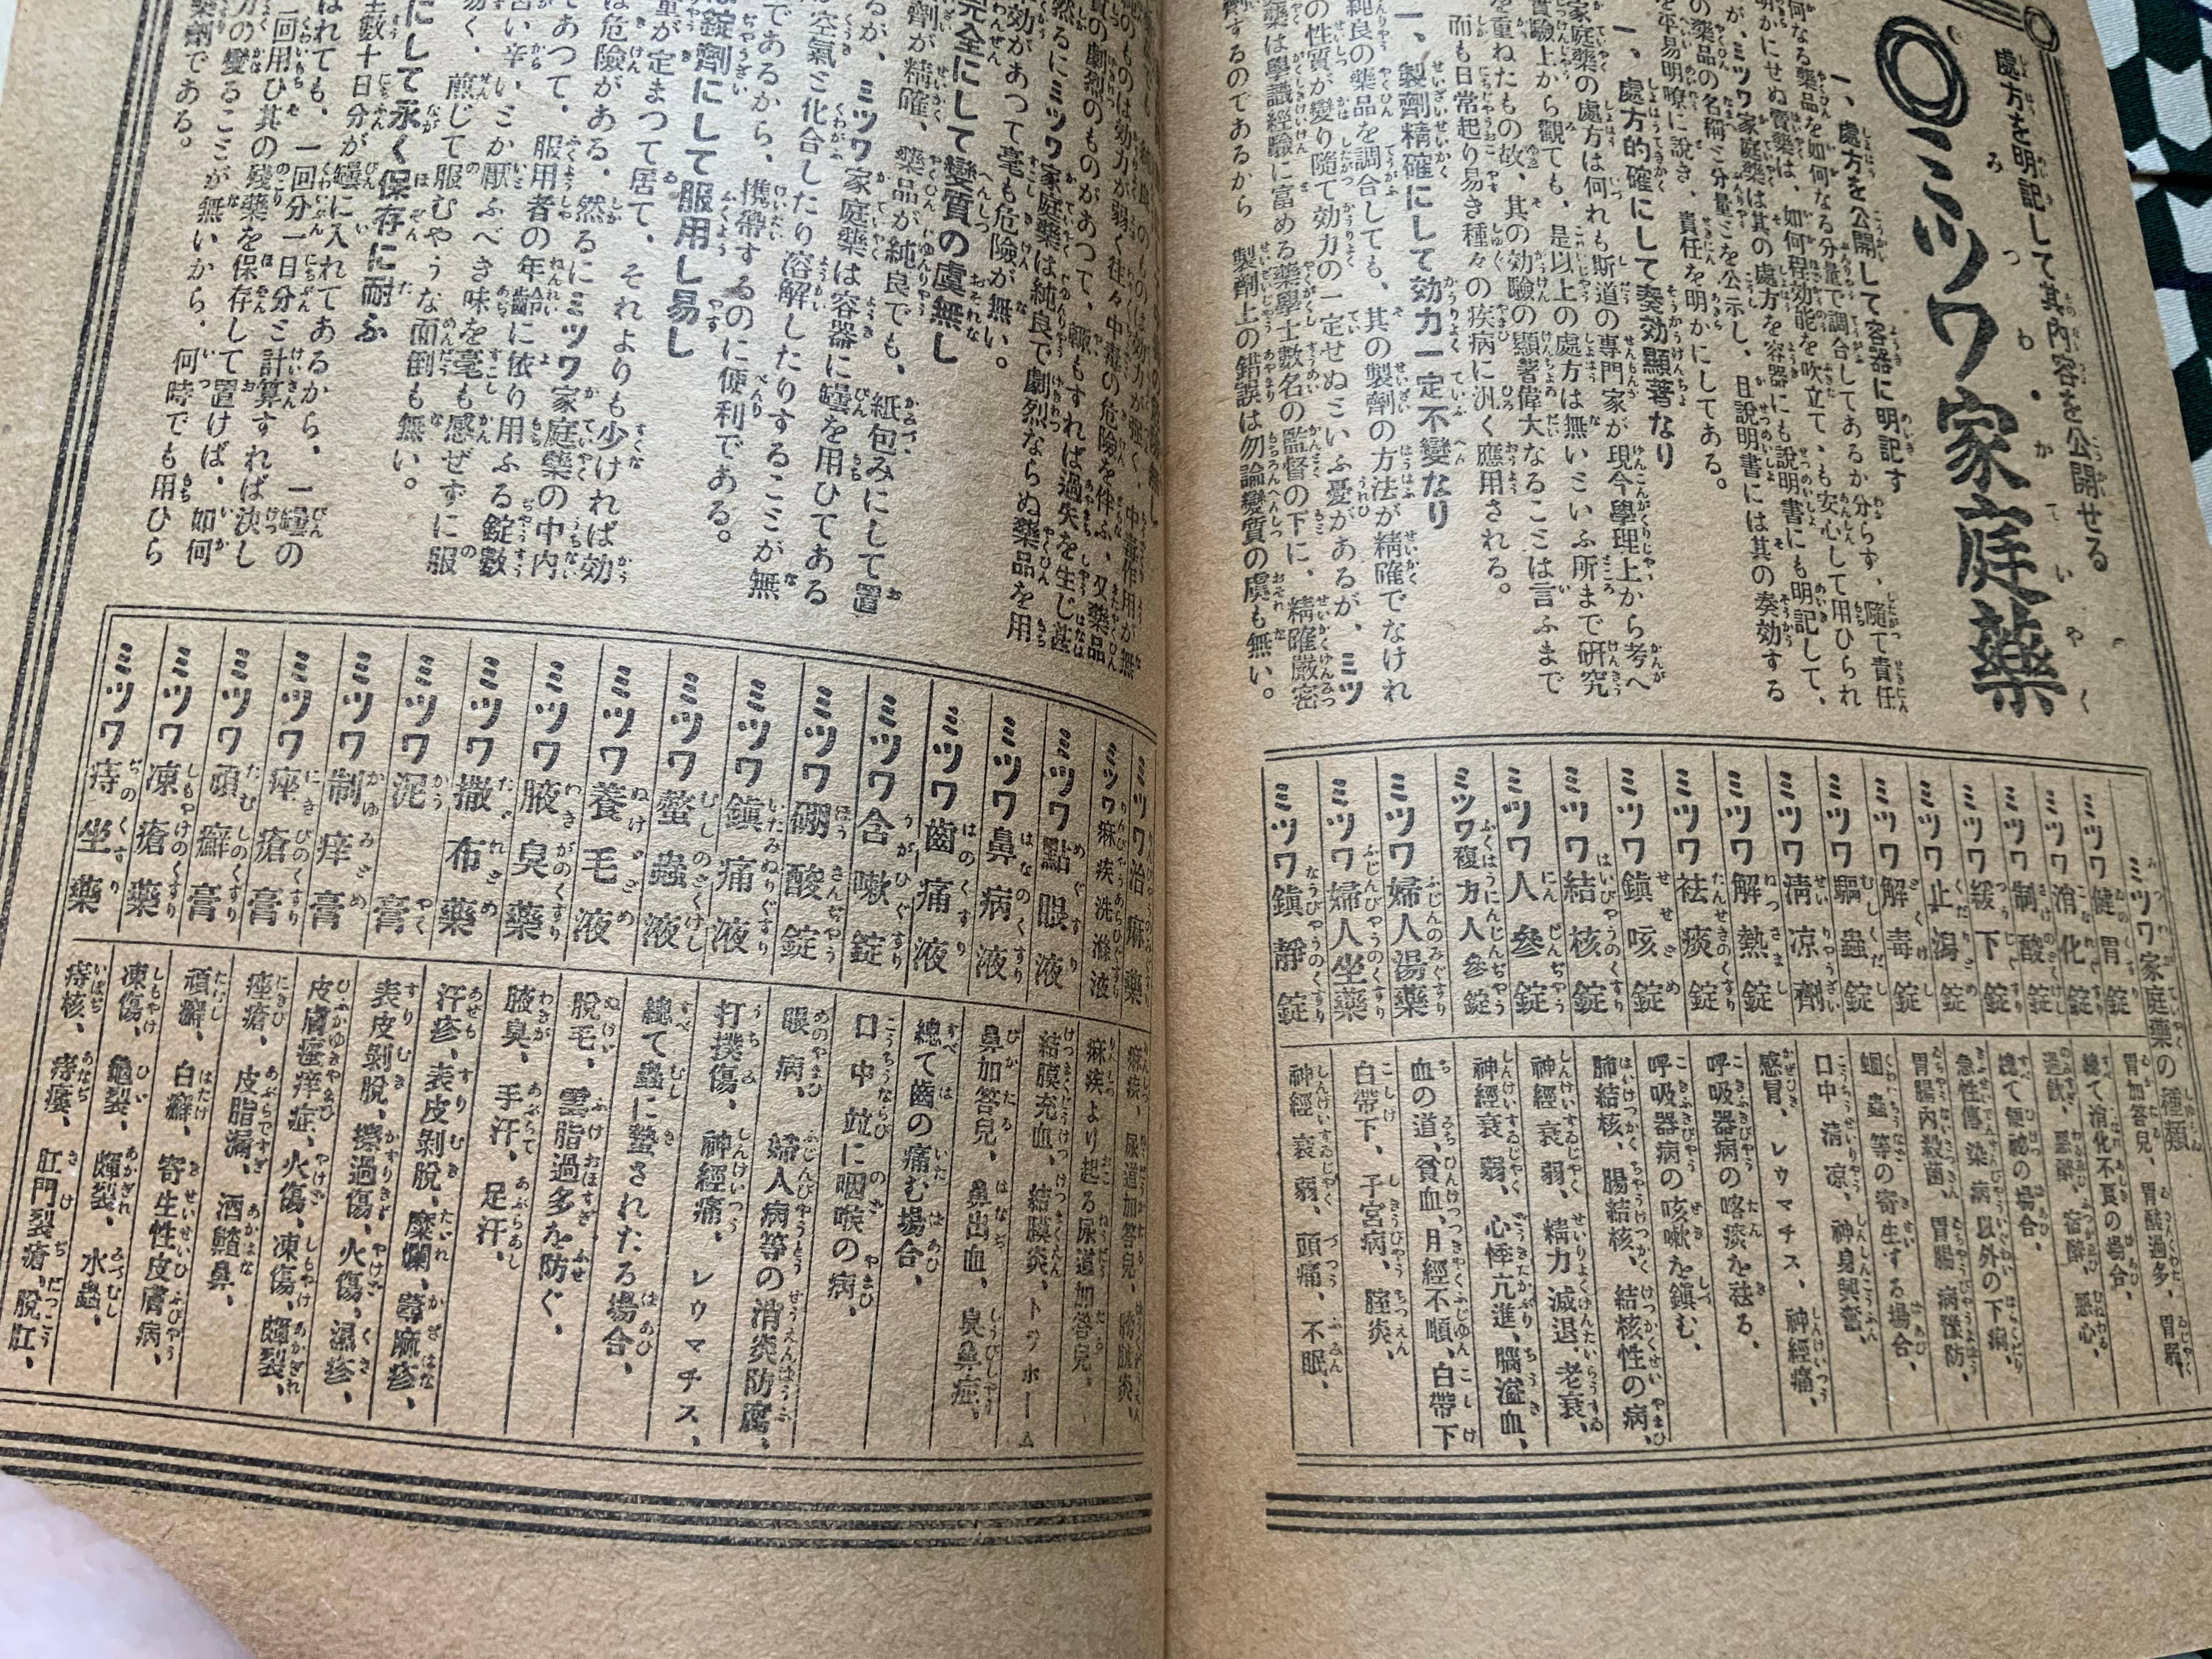 處方を明記して其內容を公開せる
◎ミツワ家庭藥
一、處方を公開して容器に明記す
何なる藥品を如何なる分量で調合してあるか分らず、隨て責任
明かにせぬ賣藥は、如何程効能を吹立てゝも安心して用ひられ
が、ミツワ家庭藥は其の處方を容器にも說明書にも明記して、
の藥品の名稱ミ分量ミを公示し、且說明書には其の奏効する
を平易明瞭に說き、責任を明かにしてある。
一、處方的確にして奏効顯著なり
家庭藥の處方は何れも斯道の專門家が現今學理上から考へ
實驗上から觀ても、是以上の處方は無いミいふ所まで硏究
を重ねたもの故、其の効驗の顯著偉大なるこミは言ふまで
而も日常起り易き種々の疾病に汎く應用される。
一、製劑精確にして効力一定不變なり
純良の藥品を調合しても、其の製劑の方法が精確でなけれ
の性質が變り隨て効力の一定せぬミいふ憂があるが、ミツ
藥は學識經驗に富める藥學士數名の監督の下に、精確嚴密
劑するのであるから 製劑上の錯誤は勿論變質の虞も無い。
ミツワ家庭藥の種類
ミツワ健胃錠 胃加答兒、胃酸過多、胃弱、
ミツワ消化錠 總て消化不良の場合、
ミツワ制酸錠 過飮、惡醉、宿醉、惡心、
ミツワ緩下錠 總て便祕の場合、
ミツワ止瀉錠 急性傳染病以外の下痢、
ミツワ解毒錠 胃腸內殺菌、胃腸病豫防、
ミツワ驅蟲錠 蛔蟲等の寄生する場合、
ミツワ淸凉劑 口中淸凉、神身興奮、
ミツワ解熱錠 感冒、レウマチス、神經痛、
ミツワ祛痰錠 呼吸器病の喀痰を祛る、
ミツワ鎭咳錠 呼吸器病の咳嗽を鎭む、
ミツワ結核錠 肺結核、腸結核、結核性の病、
ミツワ人參錠 神經衰弱、精力減退、老衰、
ミツワ複方人參錠 神經衰弱、心悸亢進、腦溢血、
ミツワ婦人湯藥 血の道、貧血、月經不順、白帶下
ミツワ婦人坐藥 白帶下、子宮病、腟炎、
ミツワ鎭靜錠 神經衰弱、頭痛、不眠、
のものは効力が弱く往々中毒の危險を伴ふ、又藥品
の劇烈のものがあつて、輙もすれば過失を生じ甚
然るにミツワ家庭藥は純良で劇烈ならぬ藥品を用
効があつて毫も危險が無い。
完全にして變質の虞無し
劑が精確、藥品が純良でも、紙包みにして置
るが、ミツワ家庭藥は容器に罎を用ひてある
空氣ミ化合したり溶解したりするこミが無
であるから、携帶するのに便利である。
錠劑にして服用し易し
量が定まつて居て、それよりも少ければ効
は危險がある。然るにミツワ家庭藥の中內
であつて、服用者の年齡に依り用ふる錠數
苦い辛いミか厭ふべき味を毫も感ぜずに服
易く、煎じて服むやうな面倒も無い。
にして永く保存に耐ふ
數十日分が罎に入れてあるから、一罎の
はれても、一回分一日分ミ計算すれば決し
一回用ひ其の殘藥を保存して置けば、如何
力の變るこミが無いから、何時でも用ひら
藥劑である。
ミツワ治痳藥 痳疾、尿道加答兒、膀胱炎、
ミツワ痳疾洗滌液 痳疾より起る尿道加答兒、
ミツワ點眼液 結膜充血、結膜炎、トラホーム
ミツワ鼻病液 鼻加答兒、鼻出血、臭鼻症、
ミツワ齒痛液 總て齒の痛む場合、
ミツワ含嗽錠 口中竝に咽喉の病、
ミツワ硼酸錠 眼病、婦人病等の消炎防腐、
ミツワ鎭痛液 打撲傷、神經痛、レウマチス、
ミツワ螫蟲液 總て蟲に螫されたる場合、
ミツワ養毛液 脫毛、雲脂過多を防ぐ、
ミツワ腋臭藥 腋臭、手汗、足汗、
ミツワ撒布藥 汗疹、表皮剝脫、糜爛、蕁麻疹、
ミツワ泥膏 表皮剝脫、擦過傷、火傷、濕疹、
ミツワ制痒膏 皮膚瘙痒症、火傷、凍傷、皸裂、
ミツワ痤瘡膏 痤瘡、皮脂漏、酒齄鼻、
ミツワ頑癬膏 頑癬、白癬、寄生性皮膚病、
ミツワ凍瘡藥 凍傷、龜裂、皸裂、水蟲、
ミツワ痔坐藥 痔核、痔瘻、肛門裂瘡、脫肛、